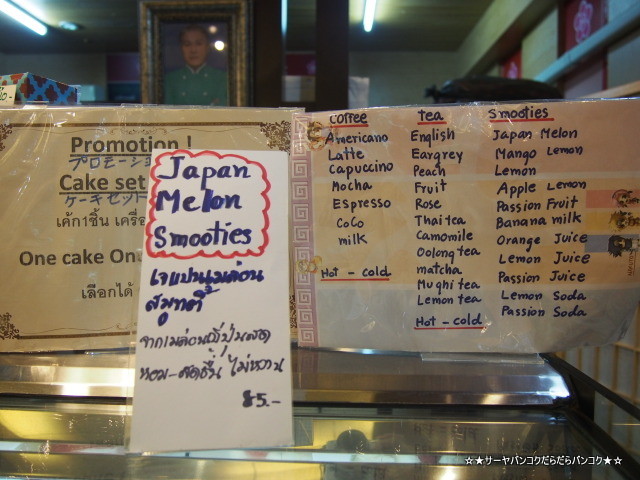 Promotion !
プロモーション
Cake set
ケーキセット
เค้ก1ชิ้น เครื่อ
One cake One
เลือกได้
Japan
Melon
Smooties
เจแปนเมล่อน
สมูทตี้
จากเมล่อนญี่ปุ่นสด
หอม-สดชื่น ไม่หวาน
85.-
Coffee
Americano
Latte
Capuccino
Mocha
Espresso
CoCo
milk
Hot - cold
Tea
English
Eargrey
Peach
Fruit
Rose
Thai tea
Camomile
Oolong tea
matcha
Mughi tea
Lemon tea
Hot - cold
Smooties
Japan Melon
Mango Lemon
Lemon
Apple Lemon
Passion Fruit
Banana milk
Orange Juice
Lemon Juice
Passion Juice
Lemon Soda
Passion Soda
☆★サーヤバンコクだらだらバンコク★☆